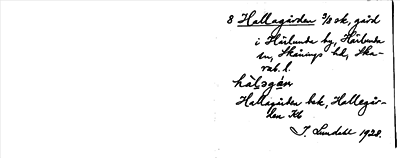 8 Hallagården 3/8 sk, gård
i Härlunda by, Härlunda
sn, Skånings hd, Ska-
rab. l.
hálagán
Hallagården bek, Hallegår-
den Kb
J. Lundell 1928.